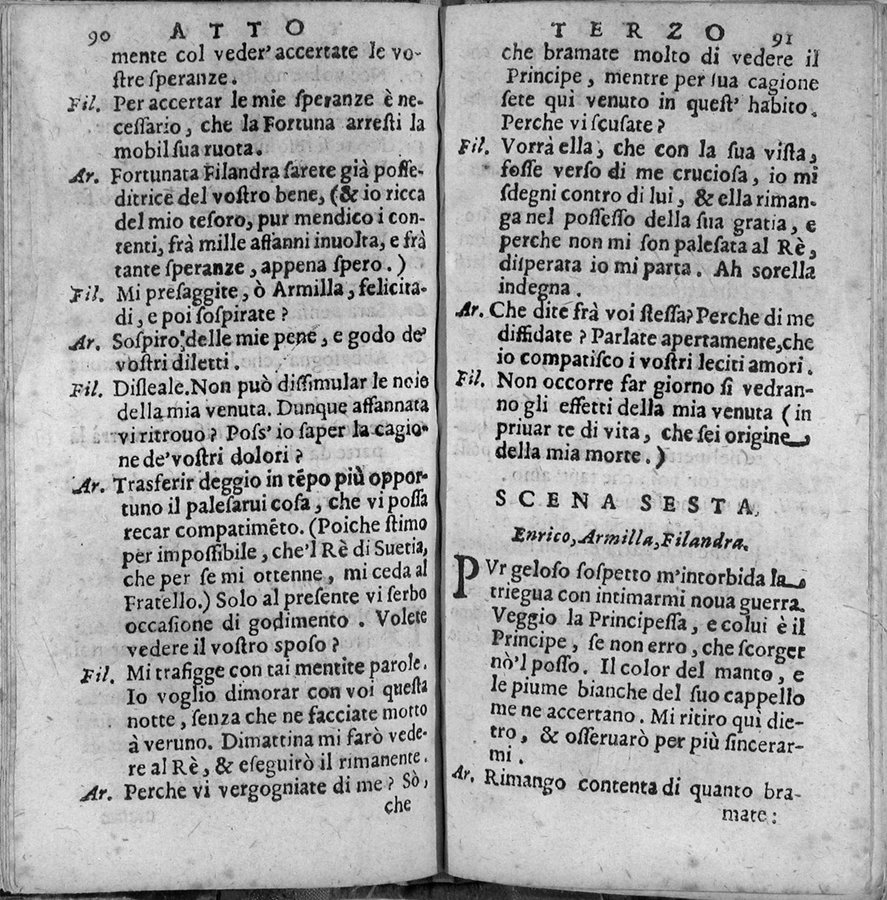 90 ATTO
mente col veder' accertate le vo-
ſtre ſperanze.
Fil. Per accertar le mie ſperanze è ne-
ceſſario, che la Fortuna arreſti la
mobil ſua ruota.
Ar. Fortunata Filandra ſarete già poſſe-
ditrice del voſtro bene, (& io ricca
del mio teſoro, pur mendico i con-
tenti, frà mille affanni inuolta, e frà
tante ſperanze, appena ſpero.)
Fil. Mi preſaggite, ò Armilla, felicita-
di, e poi ſoſpirate?
Ar. Soſpiro delle mie pene, e godo de'
voſtri diletti.
Fil. Diſleale. Non può diſſimular le noie
della mia venuta. Dunque affannata
vi ritrouo? Poſs' io ſaper la cagio-
ne de' voſtri dolori?
Ar. Trasferir deggio in tẽpo più oppor-
tuno il paleſarui coſa, che vi poſſa
recar compatimẽto. (Poiche ſtimo
per impoſſibile, che'l Rè di Suetia,
che per ſe mi ottenne, mi ceda al
Fratello.) Solo al preſente vi ſerbo
occaſione di godimento. Volete
vedere il voſtro ſpoſo?
Fil. Mi trafigge con tai mentite parole.
Io voglio dimorar con voi queſta
notte, ſenza che ne facciate motto
à veruno. Dimattina mi farò vede-
re al Rè, & eſeguirò il rimanente.
Ar. Perche vi vergogniate di me? Sò,
che
TERZO 91
che bramate molto di vedere il
Principe, mentre per ſua cagione
ſete quì venuto in queſt' habito.
Perche vi ſcuſate?
Fil. Vorrà ella, che con la ſua viſta,
foſſe verſo di me cruciosa, io mi
ſdegni contro di lui, & ella riman-
ga nel poſſeſſo della ſua gratia, e
perche non mi ſon paleſata al Rè,
diſperata io mi parta. Ah sorella
indegna.
Ar. Che dite frà voi ſteſſa? Perche di me
diffidate? Parlate apertamente, che
io compatiſco i voſtri leciti amori.
Fil. Non occorre far giorno ſi vedran-
no gli effetti della mia venuta (in
priuar te di vita, che ſei origine
della mia morte.)
SCENA SESTA.
Enrico, Armilla, Filandra.
PVr geloſo ſoſpetto m'intorbida la
triegua con intimarmi noua guerra.
Veggio la Principeſſa, e colui è il
Principe, ſe non erro, che ſcorger
nò'l poſſo. Il color del manto, e
le piume bianche del ſuo cappello
me ne accertano. Mi ritiro quì die-
tro, & oſſeruarò per più ſincerar-
mi.
Ar. Rimango contenta di quanto bra-
mate: